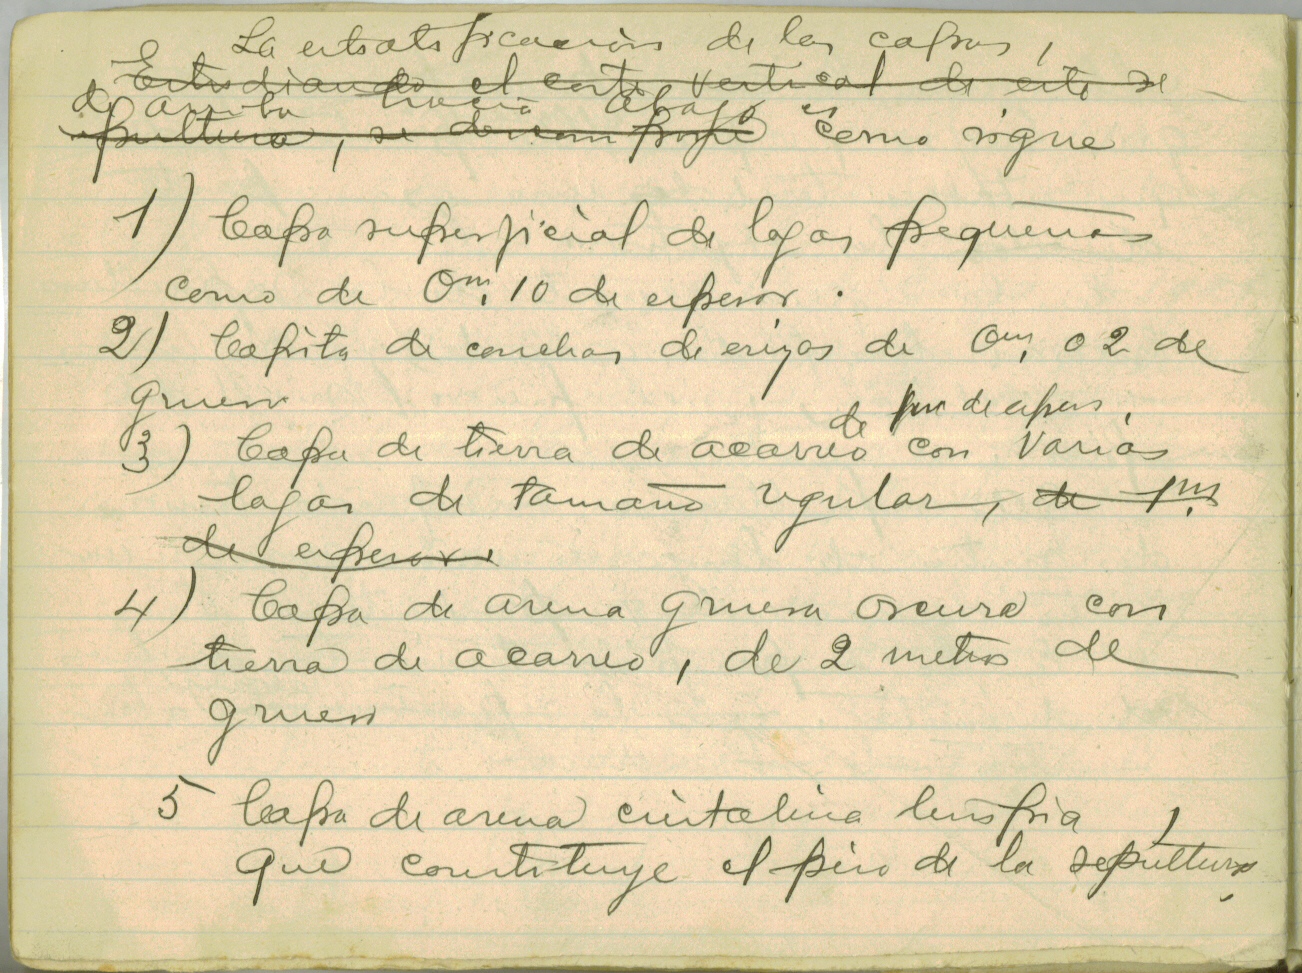 La estratificación de las capas,
Estudiando el corte vertical de esta se
de arriba hacia abajo es
pultura, se descompone como sigue
1) Capa superficial de lajas pequeñas
como de 0m,10 de espesor.
2) Capita de conchas de erizos de 0m,02 de
grueso
de de espesor,
3) Capa de tierra de acarreo con varias
lajas de tamaño regular, de 1m
de espesor.
4) Capa de arena gruesa oscura con
tierra de acarreo, de 2 metros de
grueso
5 Capa de arena cristalina limpia,
que constituye el piso de la sepultura.